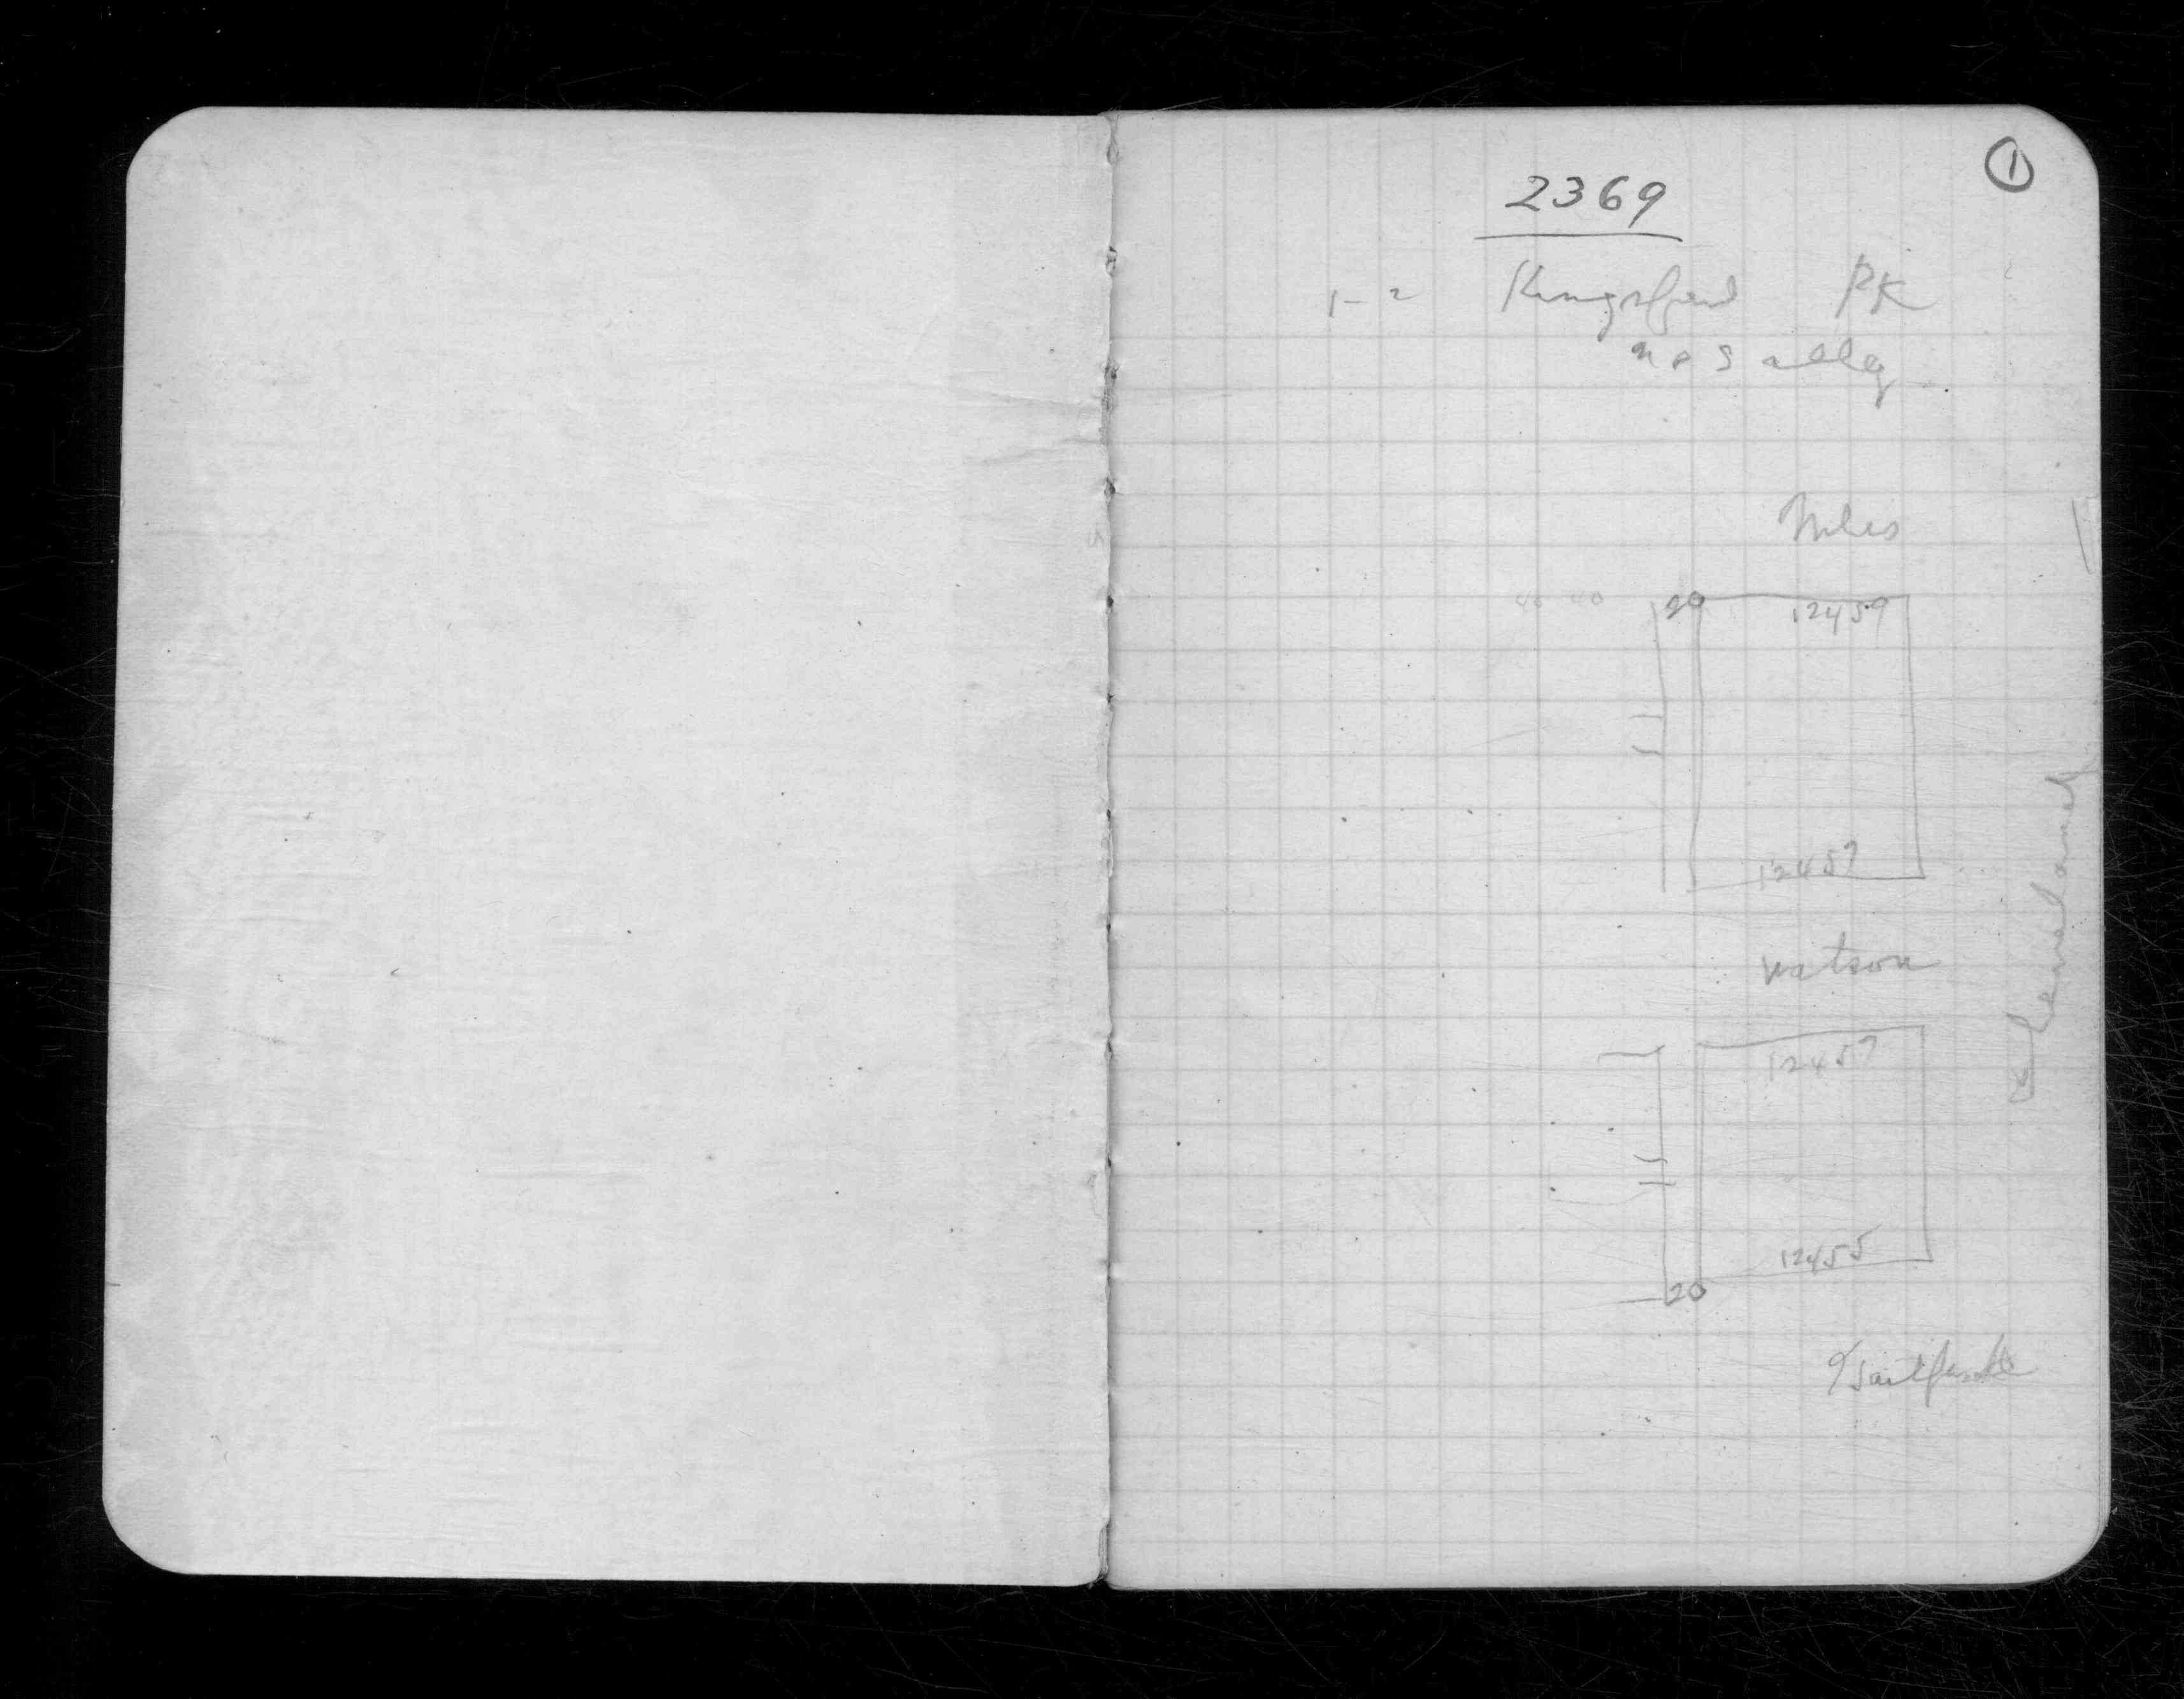 ①
2369
1-2 Kingsford PK
n & s alley
Miles
40 40 20 12459
12457
Watson
12457
12455
20